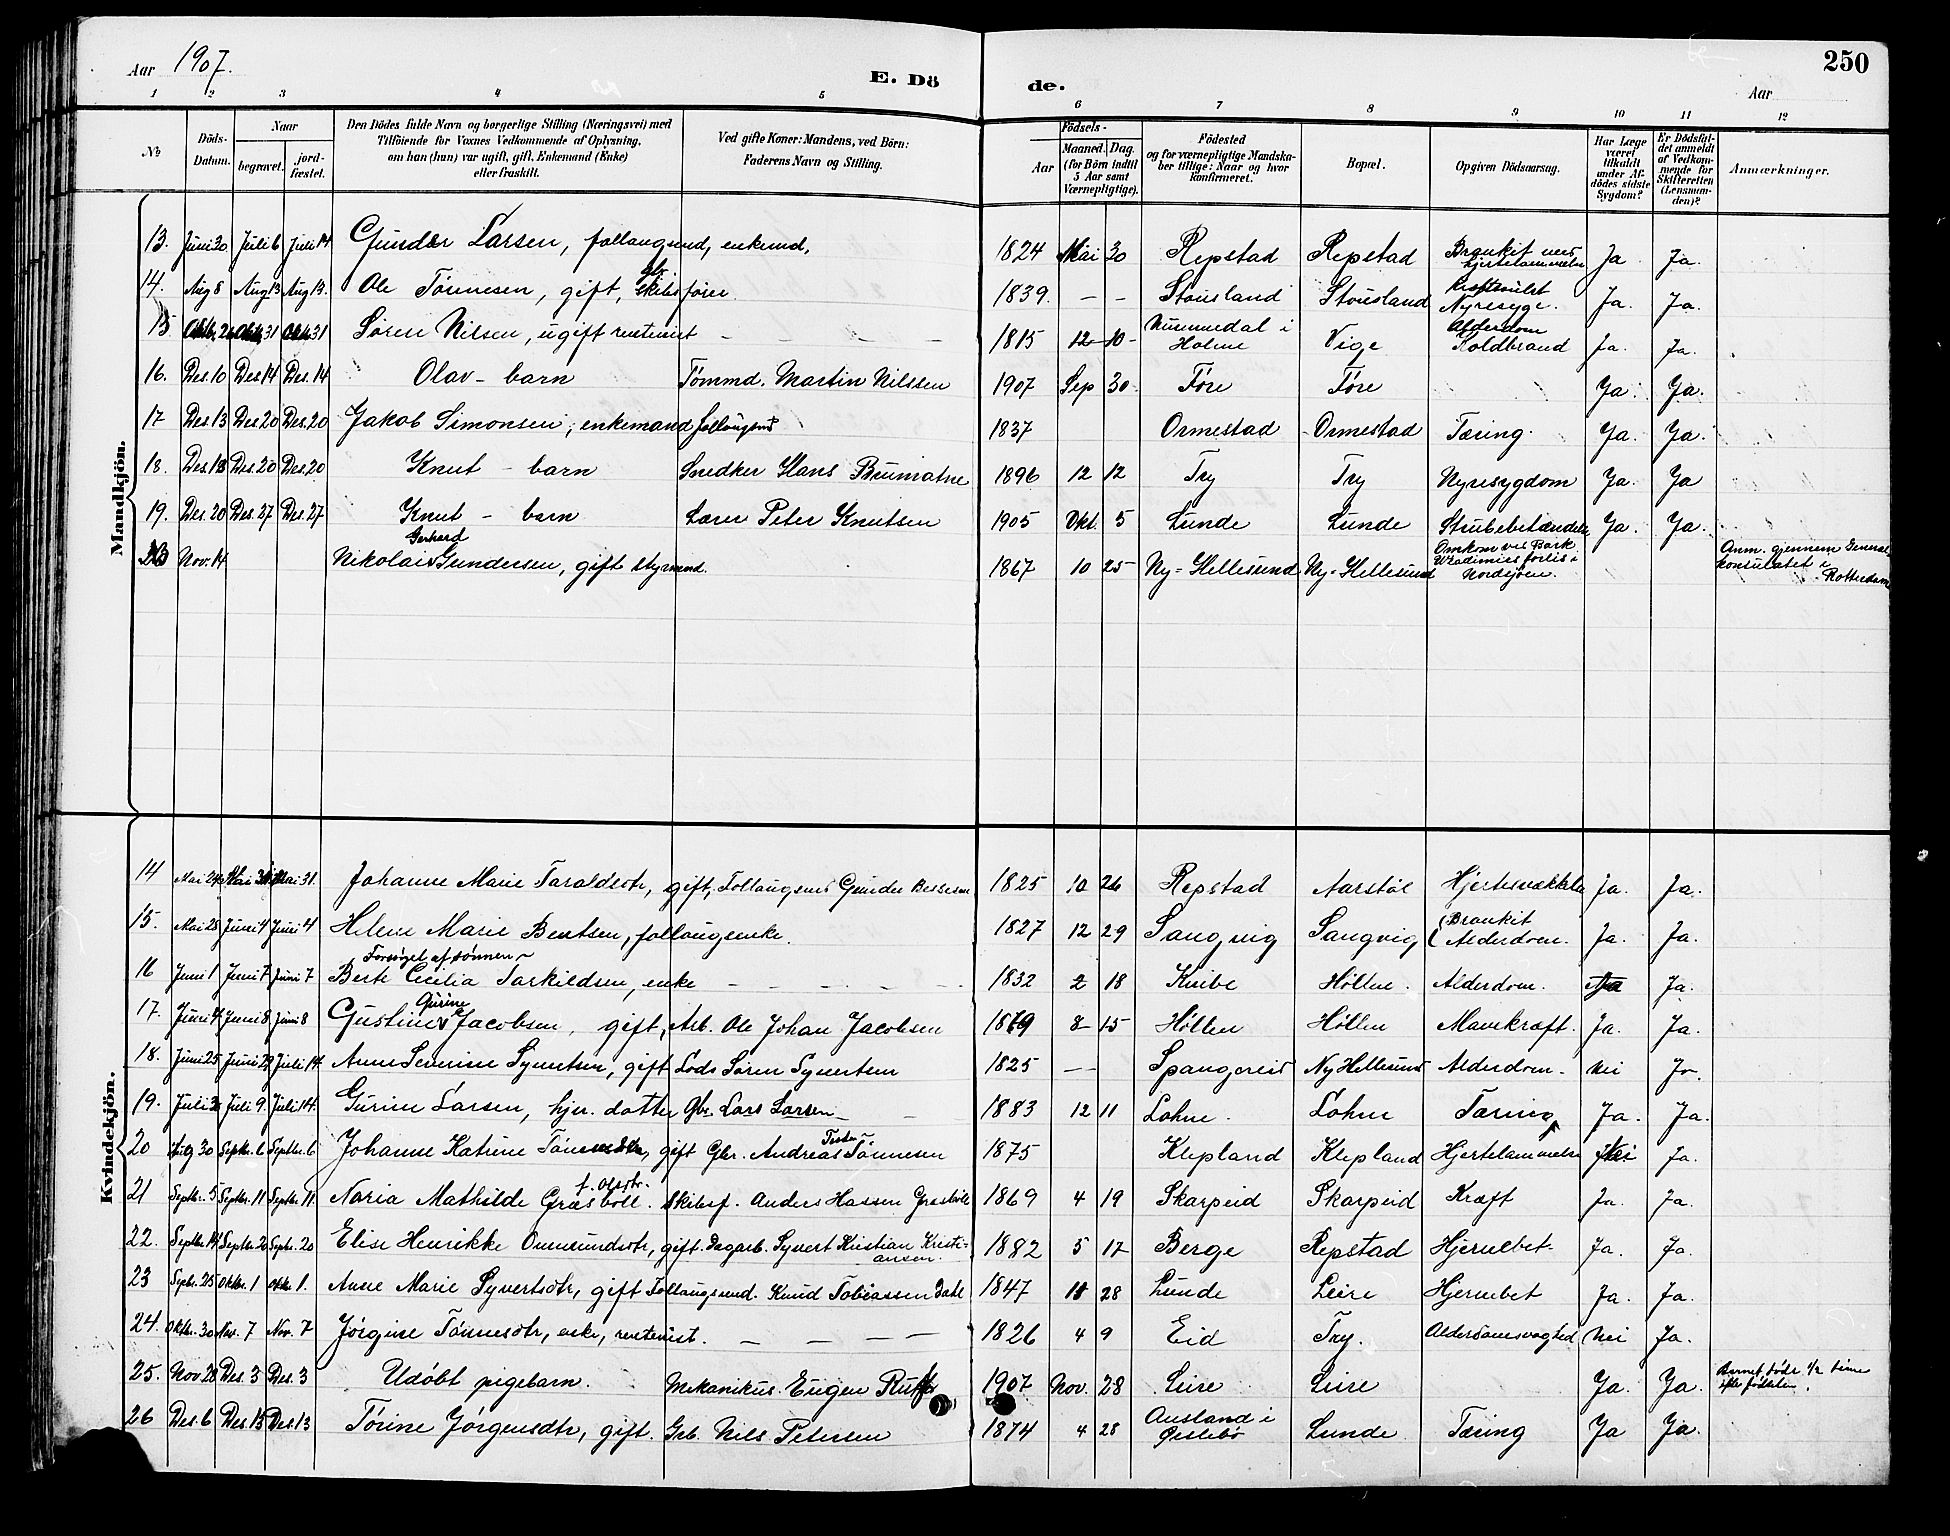 Aar 1907.
E. Dö
de.
Aar
250
1 2 3 4 5 6 7 8 9 10 11 12
No
Döds-Datum.
Naar
begravet.
jord-fæstet.
Den Dödes fulde Navn og borgerlige Stilling (Næringsvei) med
Tilföiende for Voxnes Vedkommende af Oplysning,
om han (hun) var ugift, gift, Enkemand (Enke)
eller fraskilt.
Ved gifte Koner: Mandens, ved Börn:
Faderens Navn og Stilling.
Födsels-
Aar
Maaned. Dag.
(for Börn indtil
5 Aar samt
Værnepligtige).
Födested
og for værnepligtige Mandska-
ber tillige: Naar og hvor
konfirmeret.
Bopæl.
Opgiven Dödsaarsag.
Har Læge
været
tilkaldt
under Af-
dödes sidste
Sygdom?
Er Dödsfal-
det anmeldt
af Vedkom-
mende for
Skifteretten
(Lensman-
den)?
Anmærkninger.
Mandkjön.
13. Juni 30 Juli 6 Juli 14 Gunder Larsen, follaugsmd, enkemd, 1824 Mai 30 Repstad Repstad Bronkit med hjertelammelse Ja Ja.
14. Aug 8 Aug 13 Aug 13. Ole Tønnesen, gift, skibsfører 1839. - - Stousland Stousland Nyresyge. Ja. Ja.
15 Okt. 26 Okt. 31 Okt 31 Søren Nilsen, ugift rentenist - - - - 1815 12 10 - i Holme Vige Alderdom Koldbrand Ja. Ja.
16. Des. 10 Des 14 Des. 14 Olav - barn Tømmd. Martin Nilssen 1907 Sep 30 Føre Føre Ja. Ja.
17 Des. 13 Des 20 Des. 20 Jakob Simonsen, enkemand follaugsmd 1837 Ormestad Ormestad Tæring. Ja. Ja.
18. Des. 13 Des. 20 Des. 20 Knut - barn Snedker Hans Brumatne 1896 12 12 Try Try Nyresygdom Ja. Ja
19. Des. 20 Des. 27 Des. 27 Knut - barn Lærer Peter Knutsen 1905 Okt. 5 Lunde Lunde Strubebetændelse Ja. Ja.
20 Nov. 14 Nikolai Gerhard Gundersen, gift styrmand. 1867 10 25 Ny-Hellesund Ny-Hellesund Omkom ved Bark Wladimirs forlis i Nordsjøen. Anm. gjennem General konsulatet i Rotterdam
Kvindekjön.
14 Mai 24 Mai 31 Mai 31. Johanne Marie Taraldsdtr, gift, Follaugsmd Gunder Bessesen 1825 10 26 Repstad Aarstøl Hjertesvækkelse Ja. Ja.
15. Mai 28 Juni 4 Juni 4 Helene Marie Bentsen, follaugsenke. 1827 12 29 Sangvig Sangvig Bronkit Alderdom. Ja. Ja.
16 Juni 1 Juni 7 Juni 7 Forsørget af sønnen Berte Cicilia Tarkildsen, enke - - - - 1832 2 18 Knibe Høllen. Alderdom. Ja.
17. Juni 4 Juni 8 Juni 8 Gustine Gurine Jacobsen, gift, Arb. Ole Johan Jacobsen 1879 8 15 Høllen Høllen Mavekræft. Ja. Ja.
18. Juni 25 Juni 29 Juli 14. Anne Severine Syvertsen, gift Lods Søren Syvertsen 1825 - - Spangereid Ny Hellesund Alderdom. Nei Ja.
19. Juli 3 Juli 9. Juli 14. Gurine Larsen, hjv. datter Gbr. Lars Larsen - 1883 12 11 Lohne. Lohne Tæring Ja. Ja.
20 Aug 30 Septb. 6 Septbr. 6 Johanne Katrine Tønnesdtr, gift Gbr. Andreas Tønnesen 1875 Klepland Klepland Hjertelammelse Nei Ja.
21 Septbr. 5 Septbr. 11 Septbr 11. Maria Mathilde Græsbøll f. Olsdtr. skibsf. Anders Hassen Græsbøll 1869 4 19 Skarpeid Skarpeid Kræft Ja. Ja.
22. Septbr. 14 Septbr. 20 Septbr. 20 Elise Henrikke Ommundsdtr, gift. Dagarb. Syvert Kristian Kristi-ansen. 1882 5 17 Berge Repstad Hjernebet. Ja. Ja.
23 Septbr. 25 Oktbr. 1 Oktbr 1. Anne Marie Syvertsdtr, gift Follaugsmd. Knud Tobiassen Dahl 1847 11 28 Lunde Leire Hjernebet Ja. Ja.
24. Oktbr. 30 Nov. 7 Nov. 7 Jørgine Tønnesdtr, enke, rentenist. - - - - 1826 4 9 Eid Try. Alderdomssvaghed Nei Ja.
25. Nov. 28 Des. 3 Des. 3 Udøbt pigebarn. Mekanikus. Eugen Ruff 1907 Nov. 28 Leire Leire Ja. Ja. Barnet døde 1/2 time efter fødselen.
26 Des. 6 Des. 13 Des. 13 Tørine Jørgensdtr, gift. Grb. Nils Petersen 1874 4 28 Ausland i Øslebø Lunde Tæring Ja Ja.